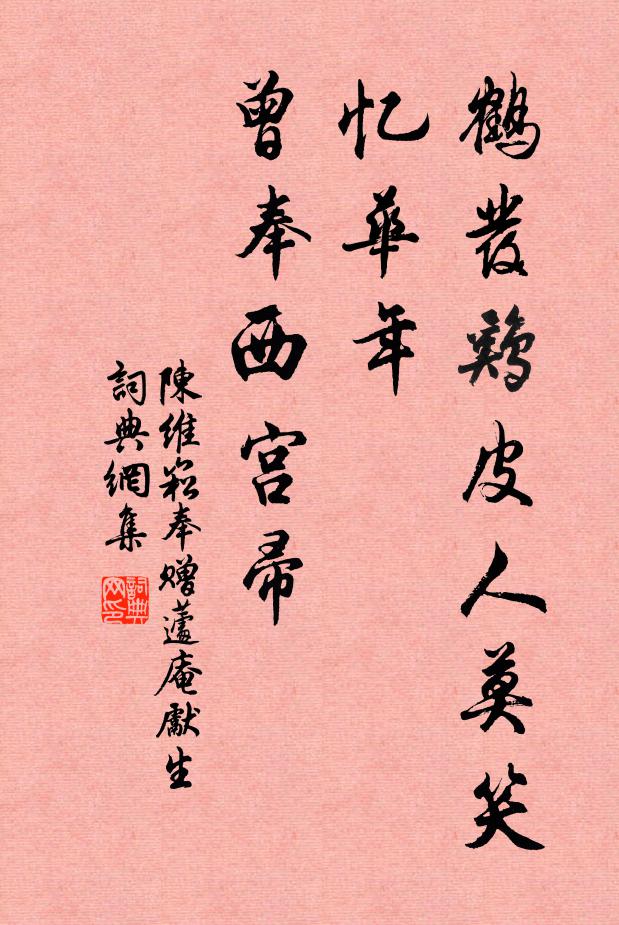 鶴發鷄皮人莫笑
忆華年
曾奉西宫帚
陳維崧奉贈蘧庵獻生
詞典網集
詞典网印